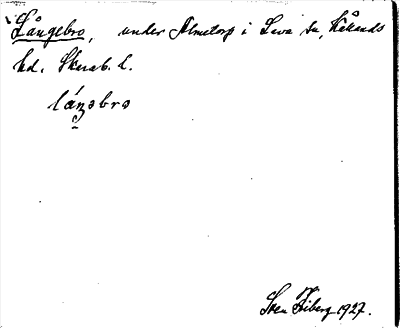 Långebro, under Almetorp i Leva sn, Kållands
hd. Skarab. l.
lángəbro
Sven Friberg 1927.